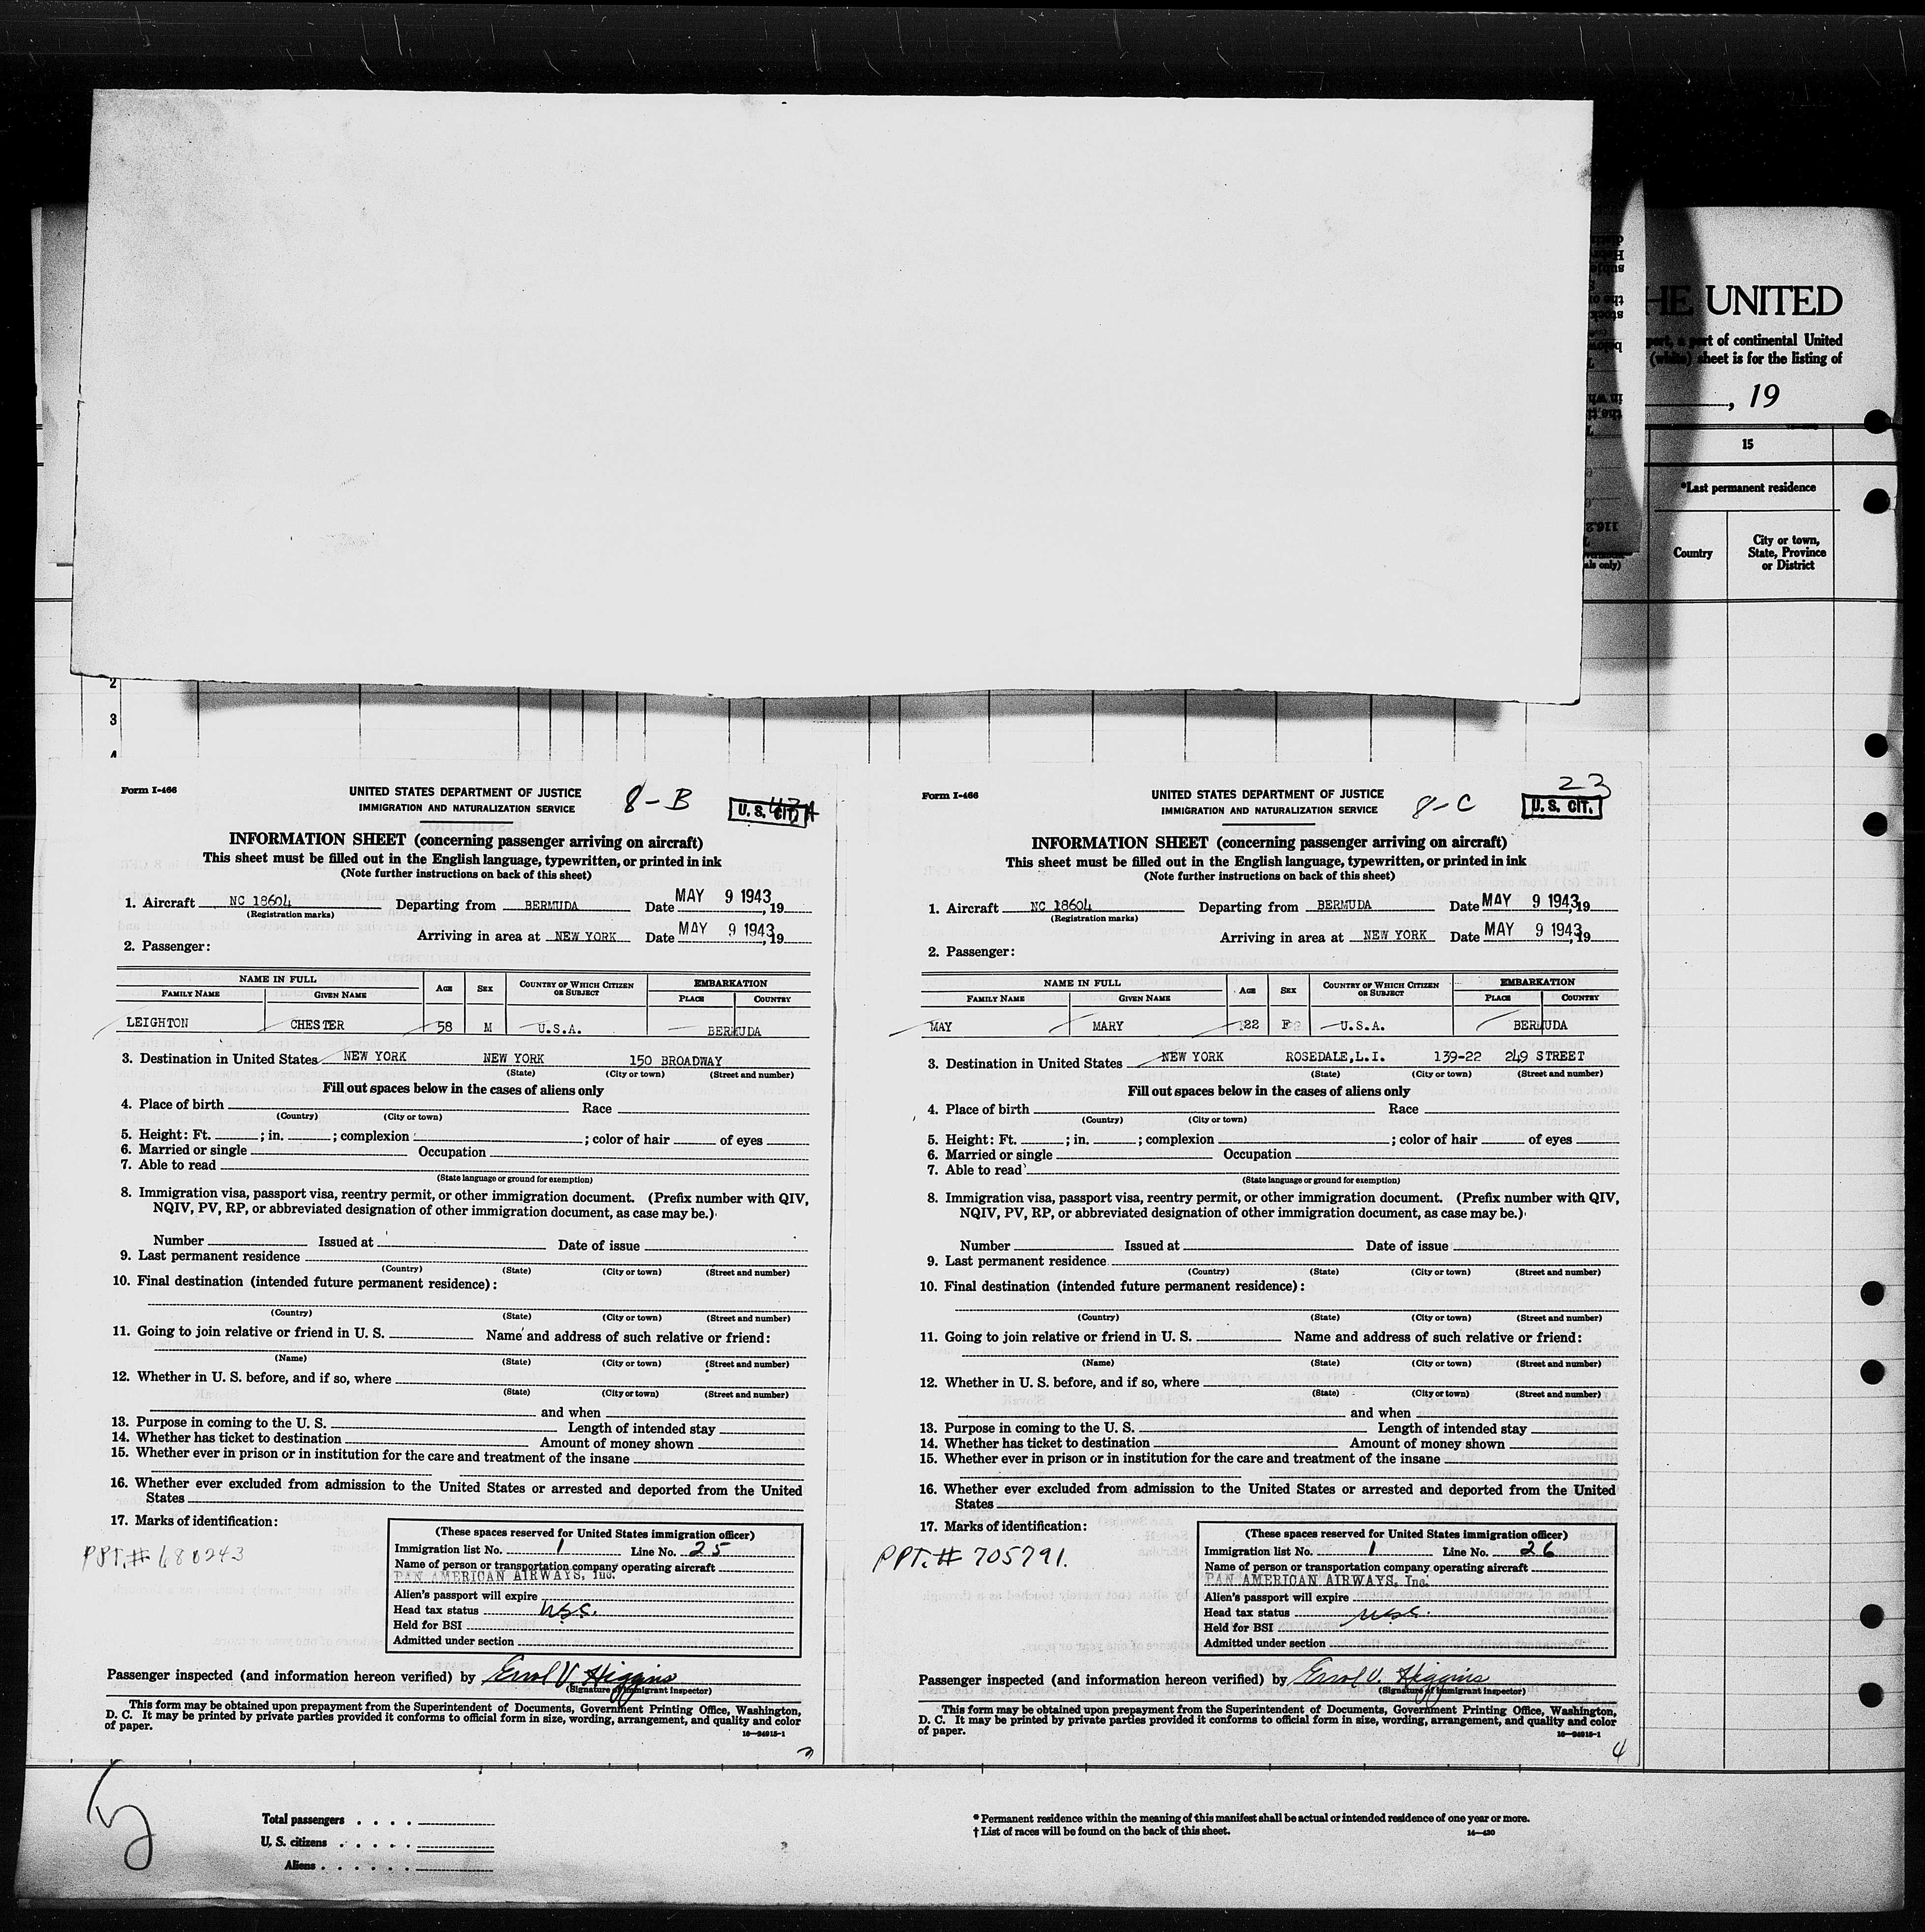 HE UNITED
port, a part of continental United
(white) sheet is for the listing of
, 19
15
*Last permanent residence
Country
City or town,
State, Province
or District
als only)
2
3
4
Form I-466
UNITED STATES DEPARTMENT OF JUSTICE
IMMIGRATION AND NATURALIZATION SERVICE
8-B
U. S. CIT.
INFORMATION SHEET (concerning passenger arriving on aircraft)
This sheet must be filled out in the English language, typewritten, or printed in ink
(Note further instructions on back of this sheet)
1. Aircraft NC 18604 Departing from BERMUDA Date MAY 9 1943, 19
(Registration marks)
Arriving in area at NEW YORK Date MAY 9 1943, 19
2. Passenger:
NAME IN FULL AGE SEX COUNTRY OF WHICH CITIZEN OR SUBJECT EMBARKATION
FAMILY NAME GIVEN NAME PLACE COUNTRY
LEIGHTON CHESTER 58 M U.S.A. BERMUDA
3. Destination in United States NEW YORK NEW YORK 150 BROADWAY
(State) (City or town) (Street and number)
Fill out spaces below in the cases of aliens only
4. Place of birth Race
(Country) (City or town)
5. Height: Ft. ; in. ; complexion ; color of hair of eyes
6. Married or single Occupation
7. Able to read
(State language or ground for exemption)
8. Immigration visa, passport visa, reentry permit, or other immigration document. (Prefix number with QIV,
NQIV, PV, RP, or abbreviated designation of other immigration document, as case may be.)
Number Issued at Date of issue
9. Last permanent residence
(Country) (State) (City or town) (Street and number)
10. Final destination (intended future permanent residence):
(Country) (State) (City or town) (Street and number)
11. Going to join relative or friend in U. S. Name and address of such relative or friend:
(Name) (State) (City or town) (Street and number)
12. Whether in U. S. before, and if so, where
(State) (City or town) (Street and number)
and when
13. Purpose in coming to the U. S. Length of intended stay
14. Whether has ticket to destination Amount of money shown
15. Whether ever in prison or in institution for the care and treatment of the insane
16. Whether ever excluded from admission to the United States or arrested and deported from the United
States
17. Marks of identification:
PPT. # 680243
(These spaces reserved for United States immigration officer)
Immigration list No. 1 Line No. 25
Name of person or transportation company operating aircraft
PAN AMERICAN AIRWAYS, Inc.
Alien's passport will expire
Head tax status USC.
Held for BSI
Admitted under section
Passenger inspected (and information hereon verified) by Errol V. Higgins
(Signature of Immigrant Inspector)
This form may be obtained upon prepayment from the Superintendent of Documents, Government Printing Office, Washington,
D. C. It may be printed by private parties provided it conforms to official form in size, wording, arrangement, and quality and color
of paper.
Form I-466
UNITED STATES DEPARTMENT OF JUSTICE
IMMIGRATION AND NATURALIZATION SERVICE
8-C
23
U. S. CIT.
INFORMATION SHEET (concerning passenger arriving on aircraft)
This sheet must be filled out in the English language, typewritten, or printed in ink
(Note further instructions on back of this sheet)
1. Aircraft NC 18604 Departing from BERMUDA Date MAY 9 1943, 19
(Registration marks)
Arriving in area at NEW YORK Date MAY 9 1943, 19
2. Passenger:
NAME IN FULL AGE SEX COUNTRY OF WHICH CITIZEN OR SUBJECT EMBARKATION
FAMILY NAME GIVEN NAME PLACE COUNTRY
MAY MARY 22 F U.S.A. BERMUDA
3. Destination in United States NEW YORK ROSEDALE,L.I. 139-22 249 STREET
(State) (City or town) (Street and number)
Fill out spaces below in the cases of aliens only
4. Place of birth Race
(Country) (City or town)
5. Height: Ft. ; in. ; complexion ; color of hair of eyes
6. Married or single Occupation
7. Able to read
(State language or ground for exemption)
8. Immigration visa, passport visa, reentry permit, or other immigration document. (Prefix number with QIV,
NQIV, PV, RP, or abbreviated designation of other immigration document, as case may be.)
Number Issued at Date of issue
9. Last permanent residence
(Country) (State) (City or town) (Street and number)
10. Final destination (intended future permanent residence):
(Country) (State) (City or town) (Street and number)
11. Going to join relative or friend in U. S. Name and address of such relative or friend:
(Name) (State) (City or town) (Street and number)
12. Whether in U. S. before, and if so, where
(State) (City or town) (Street and number)
and when
13. Purpose in coming to the U. S. Length of intended stay
14. Whether has ticket to destination Amount of money shown
15. Whether ever in prison or in institution for the care and treatment of the insane
16. Whether ever excluded from admission to the United States or arrested and deported from the United
States
17. Marks of identification:
PPT. # 705791.
(These spaces reserved for United States immigration officer)
Immigration list No. 1 Line No. 26
Name of person or transportation company operating aircraft
PAN AMERICAN AIRWAYS, Inc.
Alien's passport will expire
Head tax status USC.
Held for BSI
Admitted under section
Passenger inspected (and information hereon verified) by Errol V. Higgins
(Signature of Immigrant Inspector)
This form may be obtained upon prepayment from the Superintendent of Documents, Government Printing Office, Washington,
D. C. It may be printed by private parties provided it conforms to official form in size, wording, arrangement, and quality and color
of paper.
4
Total passengers . . . .
U. S. citizens . . . . .
Aliens . . . . . .
* Permanent residence within the meaning of this manifest shall be actual or intended residence of one year or more.
† List of races will be found on the back of this sheet.